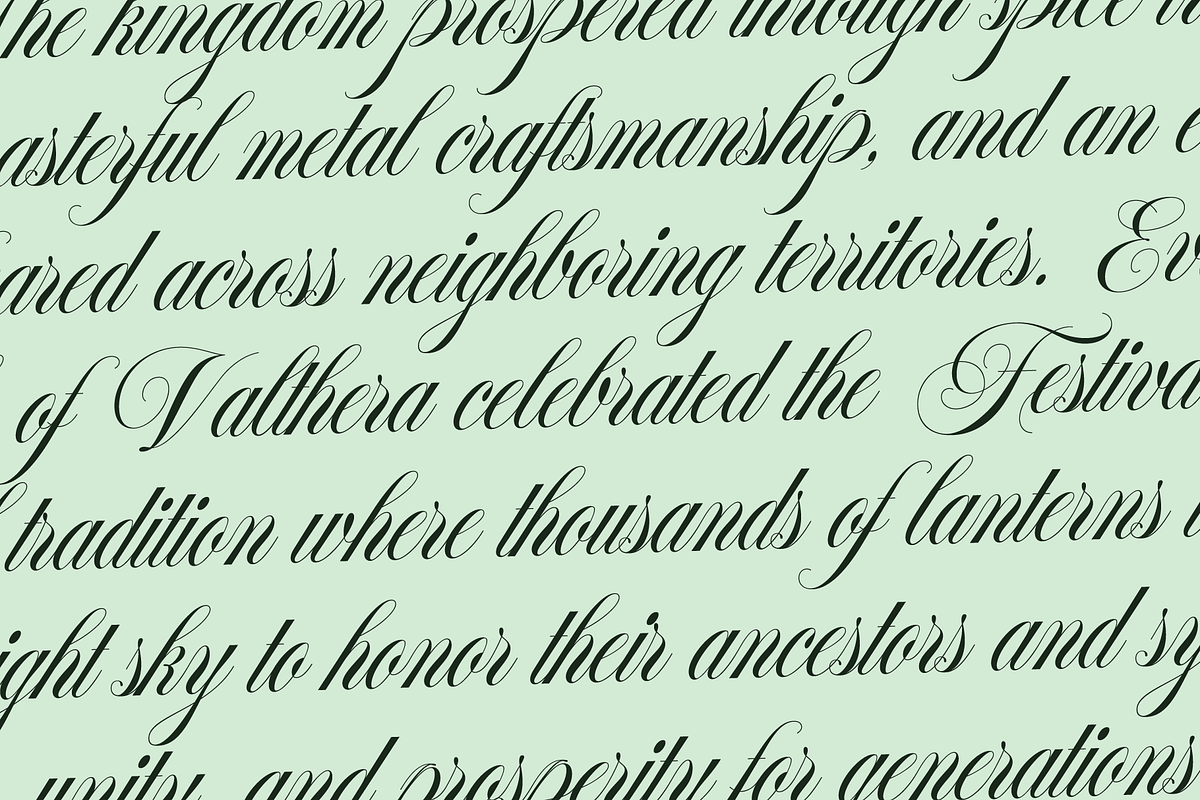 The kingdom prospered through spice
asterful metal craftsmanship, and an
ared across neighboring territories. Ev
of Valthera celebrated the Festiva
tradition where thousands of lanterns
ight sky to honor their ancestors and sy
unity, and prosperity for generations